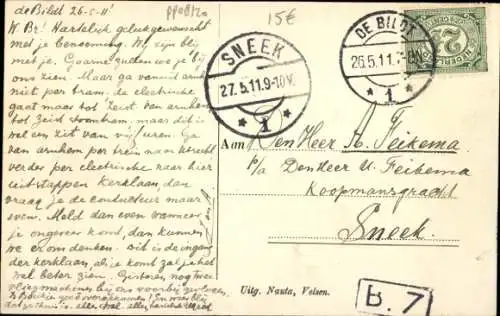 de Bildt 26-5-11'
W. Br! Hartelijk gelukgewenscht
met je benoeming. Wij zijn blij
met je. Gaarne zullen we je bij
ons zien. Maar ga vanuit
niet per tram. de electrische
gaat maar tot Zeist van Arnhem
tot Zeist stoomtram, maar dit is
wel een zit van uren. Ga van
Arnhem per trein naar Utrecht
verder per electrische naar hier
uitstappen Kerklaan dan
vraag je de conducteur maar
even. Meld dan even wanneer
je ongeveer komt, dan kunnen
we er om denken. dit is de ingang
der kerklaan, als je komt zal je het
wel beter zien. Gisteren nog twee
vliegmachines bij ons voorbij gevlogen.
PP08120
15€
SNEEK
27.5.11.9-10V.
1
DE BILDT
26.5.11.7-8N
1
NEDERLAND
2½
Aan Den Heer A. Feikema
p/a Den Heer U. Feikema
Koopmansgracht
Sneek.
Uitg. Nauta, Velsen.
B. 7